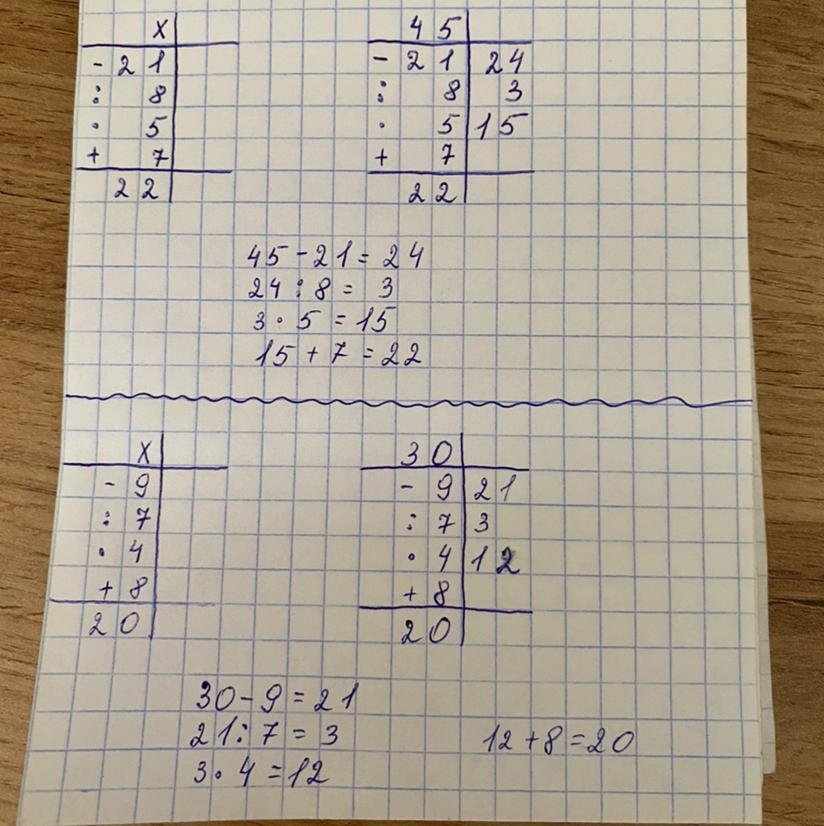 x
- 21
: 8
· 5
+ 7
22
45
- 21 24
: 8 3
· 5 15
+ 7
22
45 - 21 = 24
24 : 8 = 3
3 · 5 = 15
15 + 7 = 22
x
- 9
: 7
· 4
+ 8
20
30
- 9 21
: 7 3
· 4 12
+ 8
20
30 - 9 = 21
21 : 7 = 3
3 · 4 = 12
12 + 8 = 20